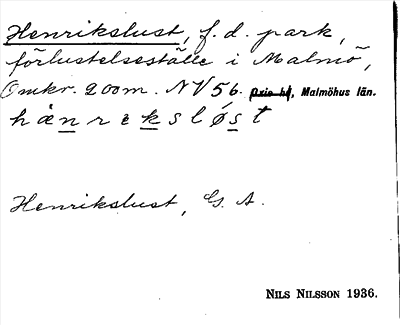 Henrikslust, f. d. park,
förlustelseställe i Malmö,
Omkr. 200 m. NV 56. Oxie hd, Malmöhus län.
hænreksløst
Henrikslust, G. A.
NILS NILSSON 1936.